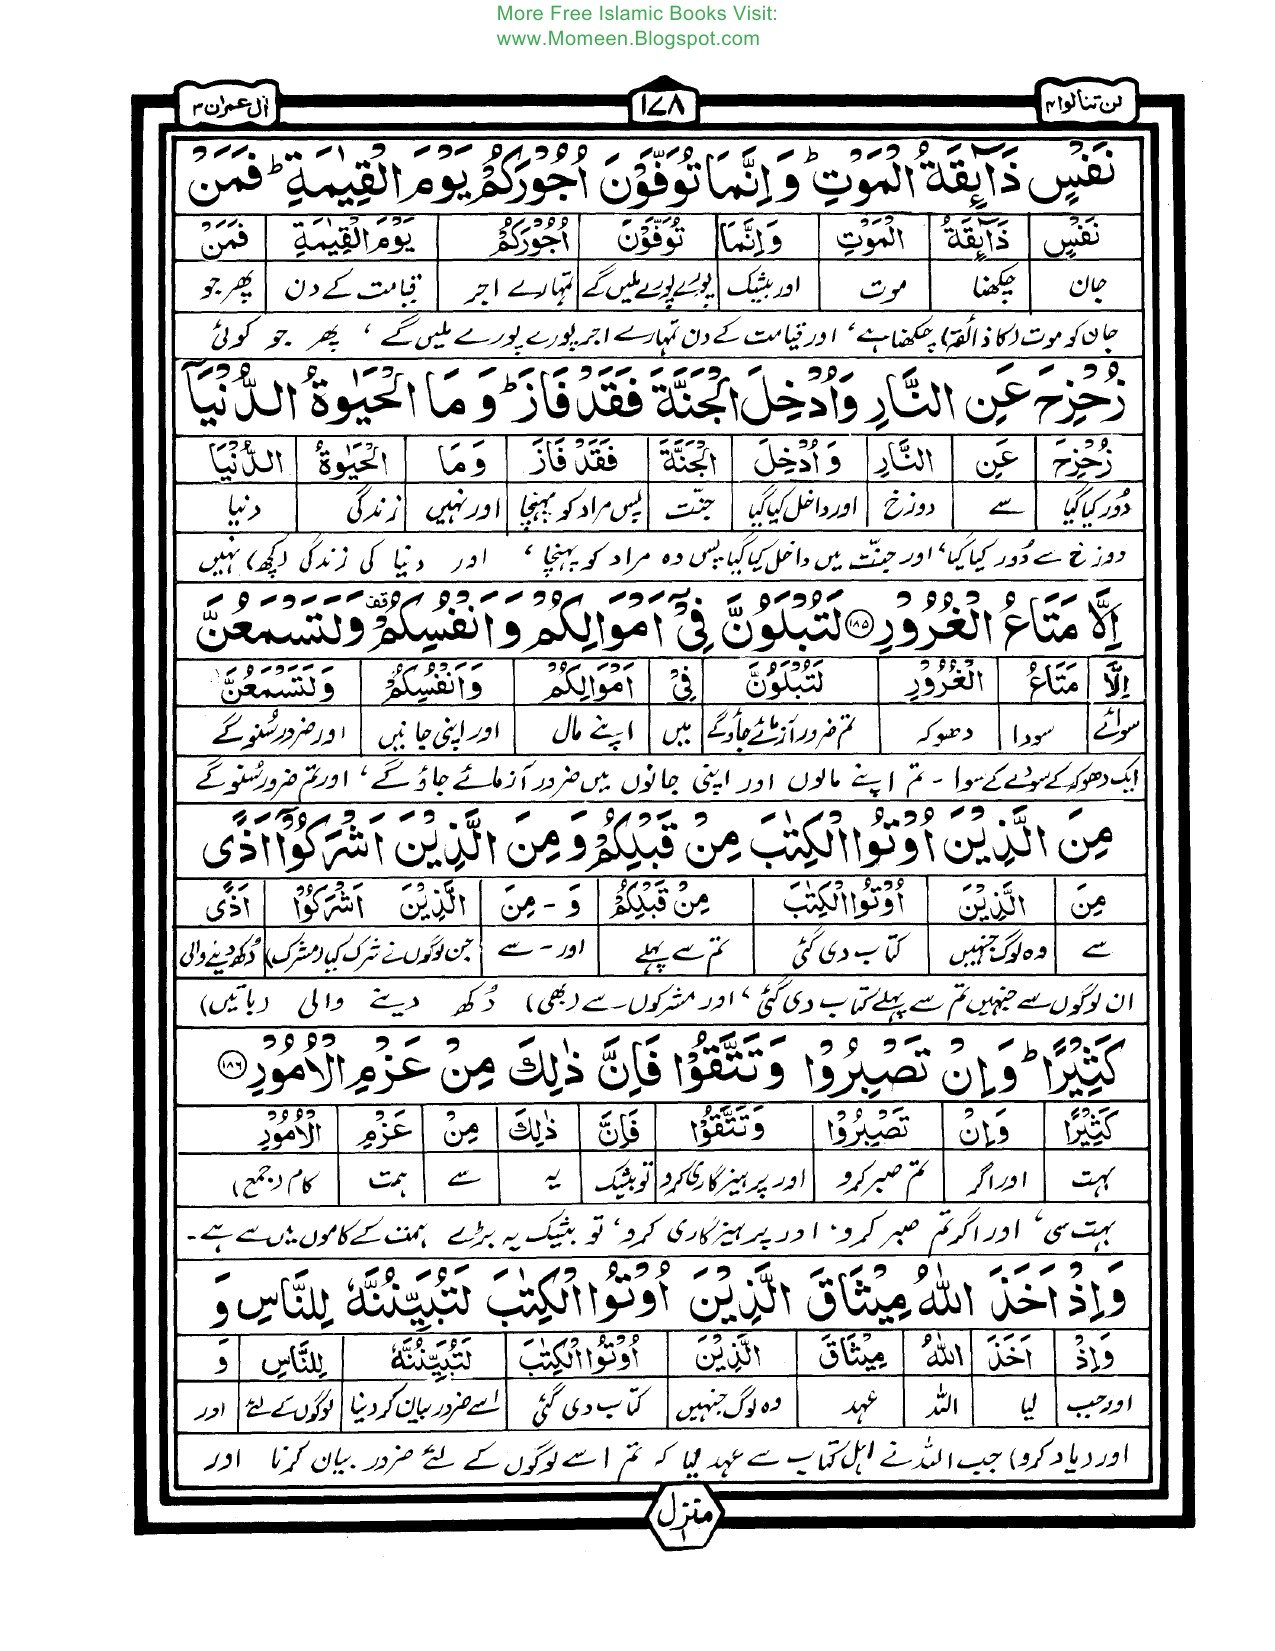 More Free Islamic Books Visit:
www.Momeen.Blogspot.com
لن تنالوا ۴ ۱۷۸ اٰل عمران ۳
نَفْسٍ ذَآئِقَةُ الْمَوْتِ ؕ وَ اِنَّمَا تُوَفَّوْنَ اُجُوْرَكُمْ يَوْمَ الْقِيٰمَةِ ؕ فَمَنْ
نَفْسٍ ذَآئِقَةُ الْمَوْتِ وَاِنَّمَا تُوَفَّوْنَ اُجُوْرَكُمْ يَوْمَ الْقِيٰمَةِ فَمَنْ
جان چکھنا موت اور بیشک پورے پورے ملیں گے تمہارے اجر قیامت کے دن پھر جو
جان کو موت (کا ذائقہ) چکھنا ہے، اور قیامت کے دن تمہارے اجر پورے پورے ملیں گے، پھر جو کوئی
زُحْزِحَ عَنِ النَّارِ وَاُدْخِلَ الْجَنَّةَ فَقَدْ فَازَ ؕ وَ مَا الْحَيٰوةُ الدُّنْيَآ
زُحْزِحَ عَنِ النَّارِ وَاُدْخِلَ الْجَنَّةَ فَقَدْ فَازَ وَمَا الْحَيٰوةُ الدُّنْيَآ
دُور کیا گیا سے دوزخ اور داخل کیا گیا جنّت پس مراد کو پہنچا اور نہیں زندگی دنیا
دوزخ سے دُور کیا گیا، اور جنّت میں داخل کیا گیا پس وہ مراد کو پہنچا، اور دنیا کی زندگی (کچھ) نہیں
اِلَّا مَتَاعُ الْغُرُوْرِ ۱۸۵ لَتُبْلَوُنَّ فِيْٓ اَمْوَالِكُمْ وَاَنْفُسِكُمْ قف وَلَتَسْمَعُنَّ
اِلَّا مَتَاعُ الْغُرُوْرِ لَتُبْلَوُنَّ فِيْٓ اَمْوَالِكُمْ وَاَنْفُسِكُمْ وَلَتَسْمَعُنَّ
سوائے سودا دھوکہ تم ضرور آزمائے جاؤ گے میں اپنے مال اور اپنی جانیں اور ضرور سُنو گے
ایک دھوکہ کے سودے کے سوا - تم اپنے مالوں اور اپنی جانوں میں ضرور آزمائے جاؤ گے، اور تم ضرور سُنو گے
مِنَ الَّذِيْنَ اُوْتُوا الْكِتٰبَ مِنْ قَبْلِكُمْ وَ مِنَ الَّذِيْنَ اَشْرَكُوْٓا اَذًى
مِنَ الَّذِيْنَ اُوْتُوا الْكِتٰبَ مِنْ قَبْلِكُمْ وَ - مِنَ الَّذِيْنَ اَشْرَكُوْٓا اَذًى
سے وہ لوگ جنہیں کتاب دی گئی تم سے پہلے اور - سے جن لوگوں نے شرک کیا (مشرک) دُکھ دینے والی
ان لوگوں سے جنہیں تم سے پہلے کتاب دی گئی، اور مشرکوں - سے (بھی) دُکھ دینے والی (باتیں)
كَثِيْرًا ؕ وَاِنْ تَصْبِرُوْا وَتَتَّقُوْا فَاِنَّ ذٰلِكَ مِنْ عَزْمِ الْاُمُوْرِ ۱۸۶
كَثِيْرًا وَاِنْ تَصْبِرُوْا وَتَتَّقُوْا فَاِنَّ ذٰلِكَ مِنْ عَزْمِ الْاُمُوْرِ
بہت اور اگر تم صبر کرو اور پرہیزگاری کرو تو بیشک یہ سے ہمت کام (جمع)
بہت سی، اور اگر تم صبر کرو، اور پرہیزگاری کرو، تو بیشک یہ بڑے ہمت کے کاموں میں سے ہے -
وَاِذْ اَخَذَ اللّٰهُ مِيْثَاقَ الَّذِيْنَ اُوْتُوا الْكِتٰبَ لَتُبَيِّنُنَّهٗ لِلنَّاسِ وَ
وَاِذْ اَخَذَ اللّٰهُ مِيْثَاقَ الَّذِيْنَ اُوْتُوا الْكِتٰبَ لَتُبَيِّنُنَّهٗ لِلنَّاسِ وَ
اور جب لیا اللہ عہد وہ لوگ جنہیں کتاب دی گئی اسے ضرور بیان کر دینا لوگوں کے لئے اور
اور (یاد کرو) جب اللہ نے اہل کتاب سے عہد لیا کہ تم اسے لوگوں کے لئے ضرور بیان کرنا اور
منزل ۱